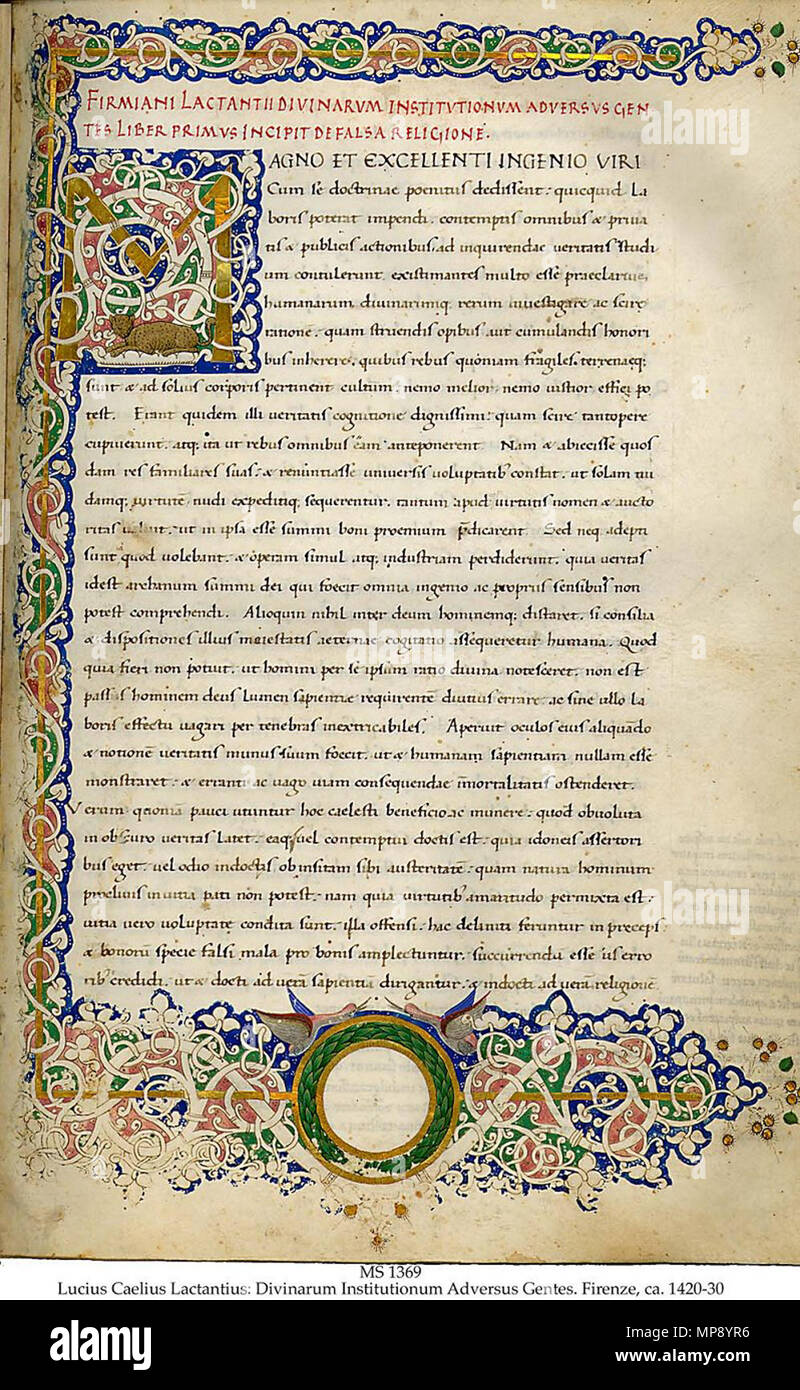 FIRMIANI LACTANTII DIVINARVM INSTITVTIONVM ADVERSVS GEN
TES LIBER PRIMVS INCIPIT DE FALSA RELIGIONE.
MAGNO ET EXCELLENTI INGENIO VIRI
Cum se doctrinae poenitus dedissent: quicquid La
boris poterat impendi. contemptis omnibus & priua
tis & publicis actionibus. ad inquirendae ueritatis studi
um contulerunt. existimantes multo esse praeclarius.
humanarum diuinarumq; rerum inuestigare ac scire
ratione. quam struendis opibus. aut cumulandis honori
bus inherere. quibus rebus quoniam fragiles. terrenaeq;
sunt & ad solius corporis pertinent cultum. nemo melior. nemo iustior effici po
test. Erant quidem illi ueritatis cognitione dignissimi: quam scire tantopere
cupiuerunt. atq; ita ut rebus omnibus eam anteponerent. Nam & abiecisse quos
dam res familiares suas: & renuntiasse uniuersis uoluptatib' constat. ut solam nu
damq; uirtutē nudi expeditiq; sequerentur. tantum apud uirtutis nomen & aucto
ritas ualuit. ut in ipsa esse summi boni proemium p̄dicarent. Sed neq. adepti
sunt quod uolebant. & operam simul atq; industriam perdiderunt. quia ueritas
idest archanum summi dei qui foecit omnia ingenio ac propriis sensibus non
potest comprehendi. Alioquin nihil inter deum hominemq; distaret. si consilia
& dispositiones illius maiestatis aeternae cogitatio assequeretur humana. Quod
quia fieri non potuit. ut homini per se ipsum ratio diuina notesceret. non est
passus hominem deus Lumen sapientiae requirentē diutius errare. ac sine ullo La
boris effectu uagari per tenebras inextricabiles. Aperuit oculos eius aliquādo
& notionē ueritatis munus suum foecit. ut & humanam sapientiam nullam esse
monstraret: & erranti ac uago uiam consequendae īmortalitatis ostenderet.
Verum quoniā pauci utuntur hoc caelesti beneficio. ac munere: quod obuoluta
in obscuro ueritas Latet. eaq; uel contemptui doctis est: quia idoneis assertori
bus eget. uel odio indoctis ob insitam sibi austeritatē: quam natura hominum
procliuis in uitia pati non potest: nam quia uirtutib' amaritudo permixta est:
uitia uero uoluptate condita sunt. illa offensi. hac deliniti feruntur in preceps
& bonorū specie falsi mala pro bonis amplectuntur. succurrendū esse iis erro
rib' credidi. ut & docti ad uerā sapientiā dirigantur. & indocti ad uerā religionē
MS 1369
Lucius Caelius Lactantius: Divinarum Institutionum Adversus Gentes. Firenze, ca. 1420-30
alamy
alamy
alamy
Image ID: MP8YR6
www.alamy.com